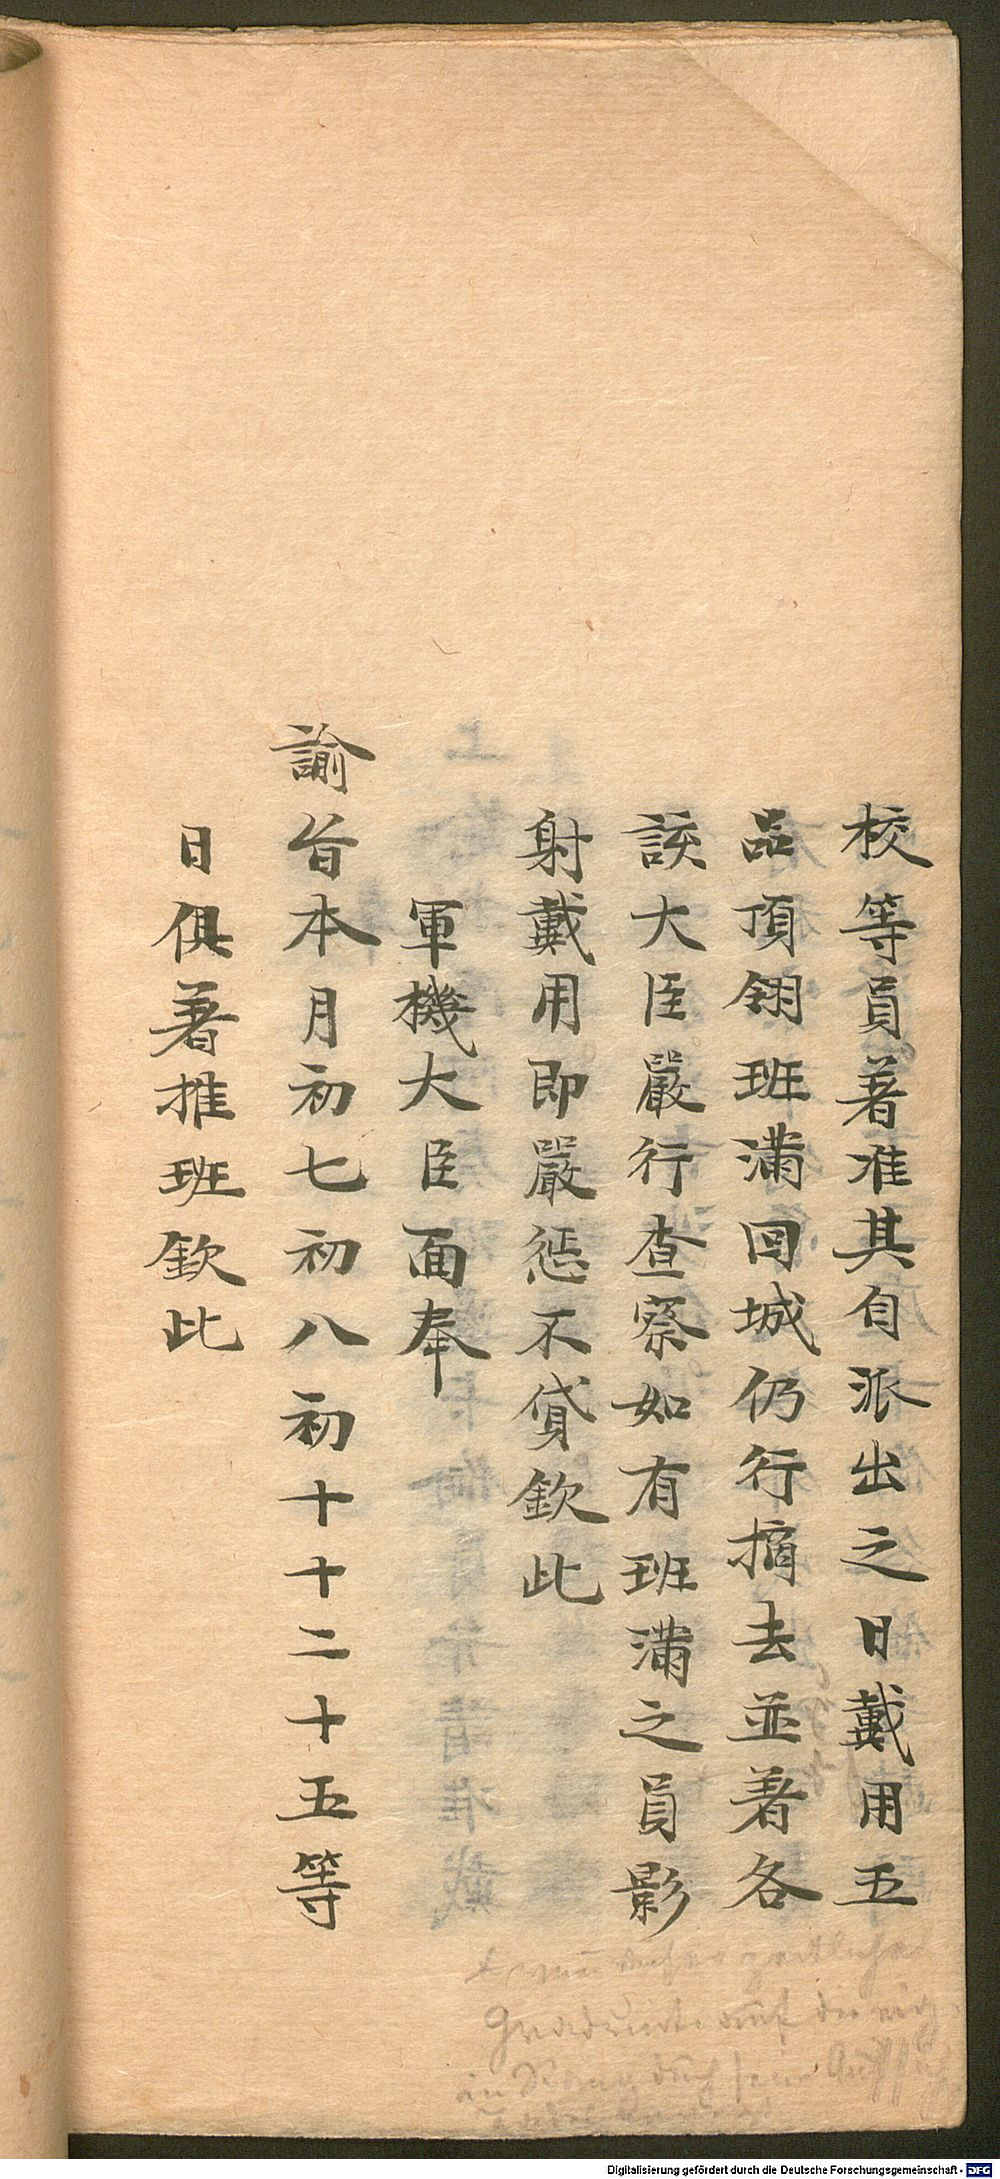 校等員著准其自派出之日戴用五
品頂翎班滿囬城仍行摘去並著各
該大臣嚴行查察如有班滿之員影
射戴用即嚴懲不貸欽此
軍機大臣面奉
諭旨本月初七初八初十十二十五等
日俱著推班欽此
Digitalisierung gefördert durch die Deutsche Forschungsgemeinschaft - DFG